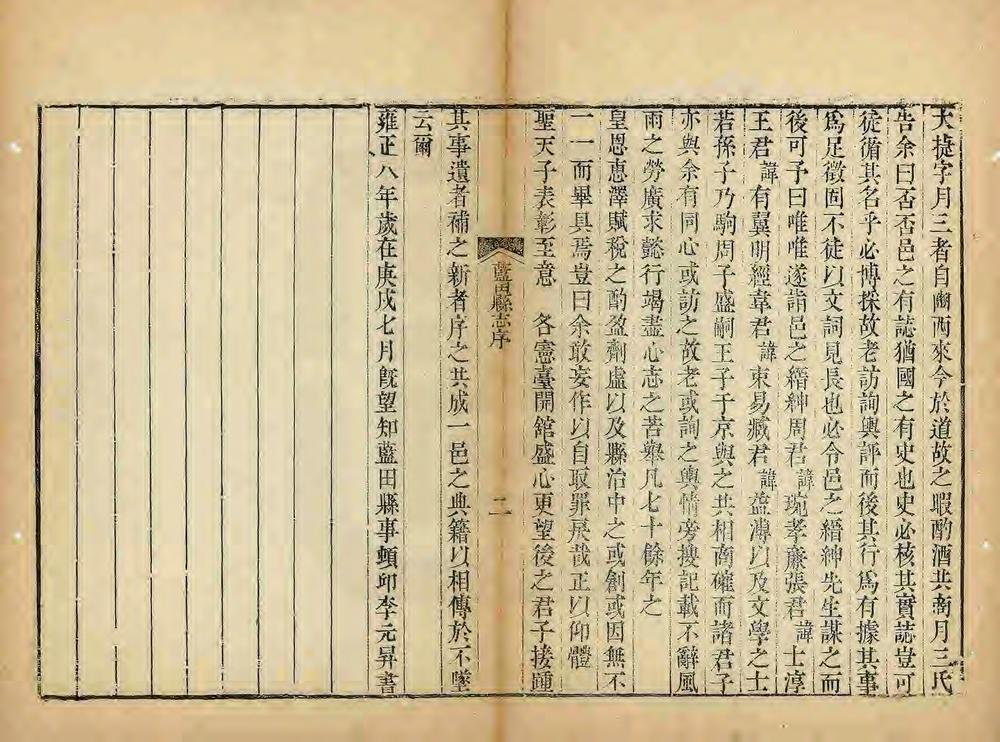 大捷字月三者自豳西來今於道故之暇酌酒共商月三氏
告余曰否否邑之有誌猶國之有史也史必核其實誌豈可
徒循其名乎必博採故老訪詢輿評而後其行爲有據其事
爲足徵固不徒以文詞見長也必令邑之縉紳先生謀之而
後可予曰唯唯遂請邑之縉紳周君諱琬孝廉張君諱士淳
王君諱有翼明經韋君諱束易臧君諱盎溥以及文學之士
若孫子乃駒周子盛嗣王子于京與之共相商確而諸君子
亦與余有同心或訪之故老或詢之輿情旁搜記載不辭風
雨之勞廣求懿行竭盡心志之苦舉凡七十餘年之
皇恩惠澤賦稅之酌盈劑虛以及縣治中之或創或因無不
一一而畢具焉豈曰余敢妄作以自取罪戾哉正以仰體
聖天子表彰至意 各憲臺開館盛心更望後之君子接踵
藍田縣志序 二
其事遺者補之新者序之共成一邑之典籍以相傳於不墜
云爾
雍正八年歲在庚戌七月旣望知藍田縣事頓邱李元昇書